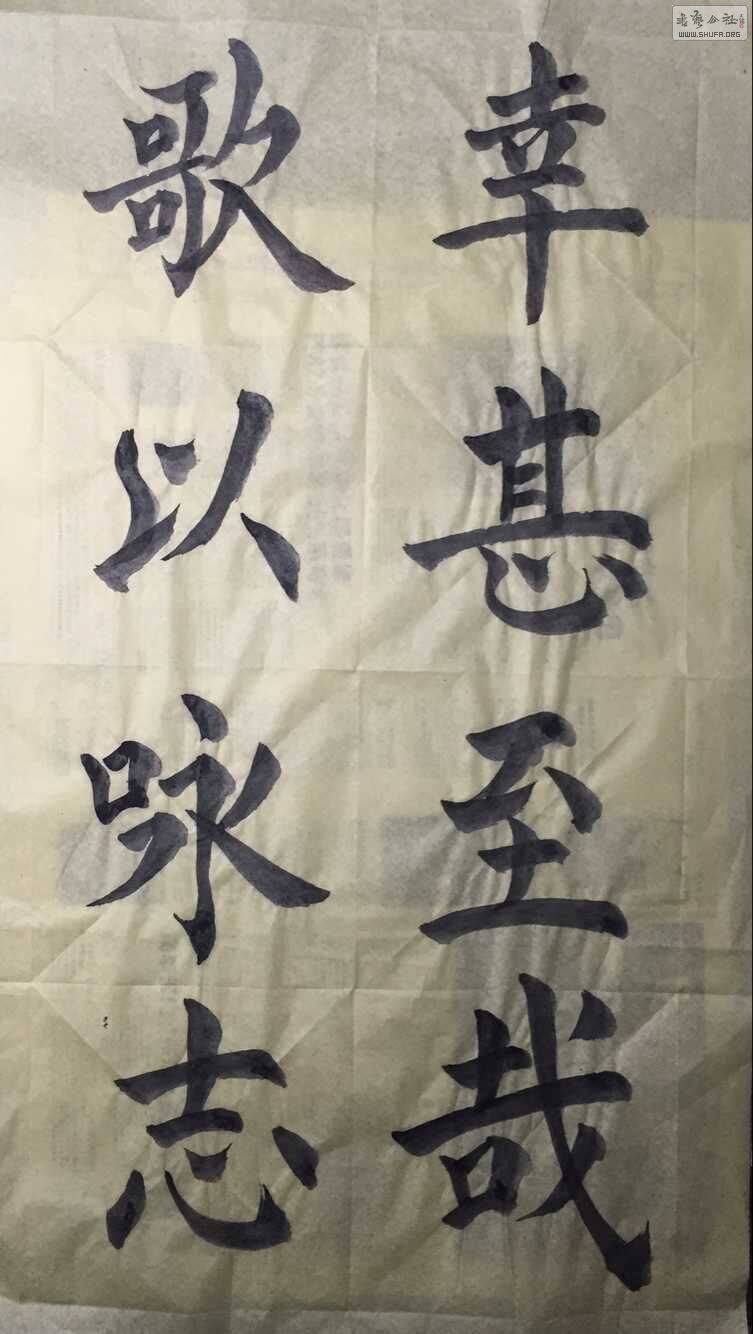 幸甚至哉
歌以咏志
WWW.SHUFA.ORG